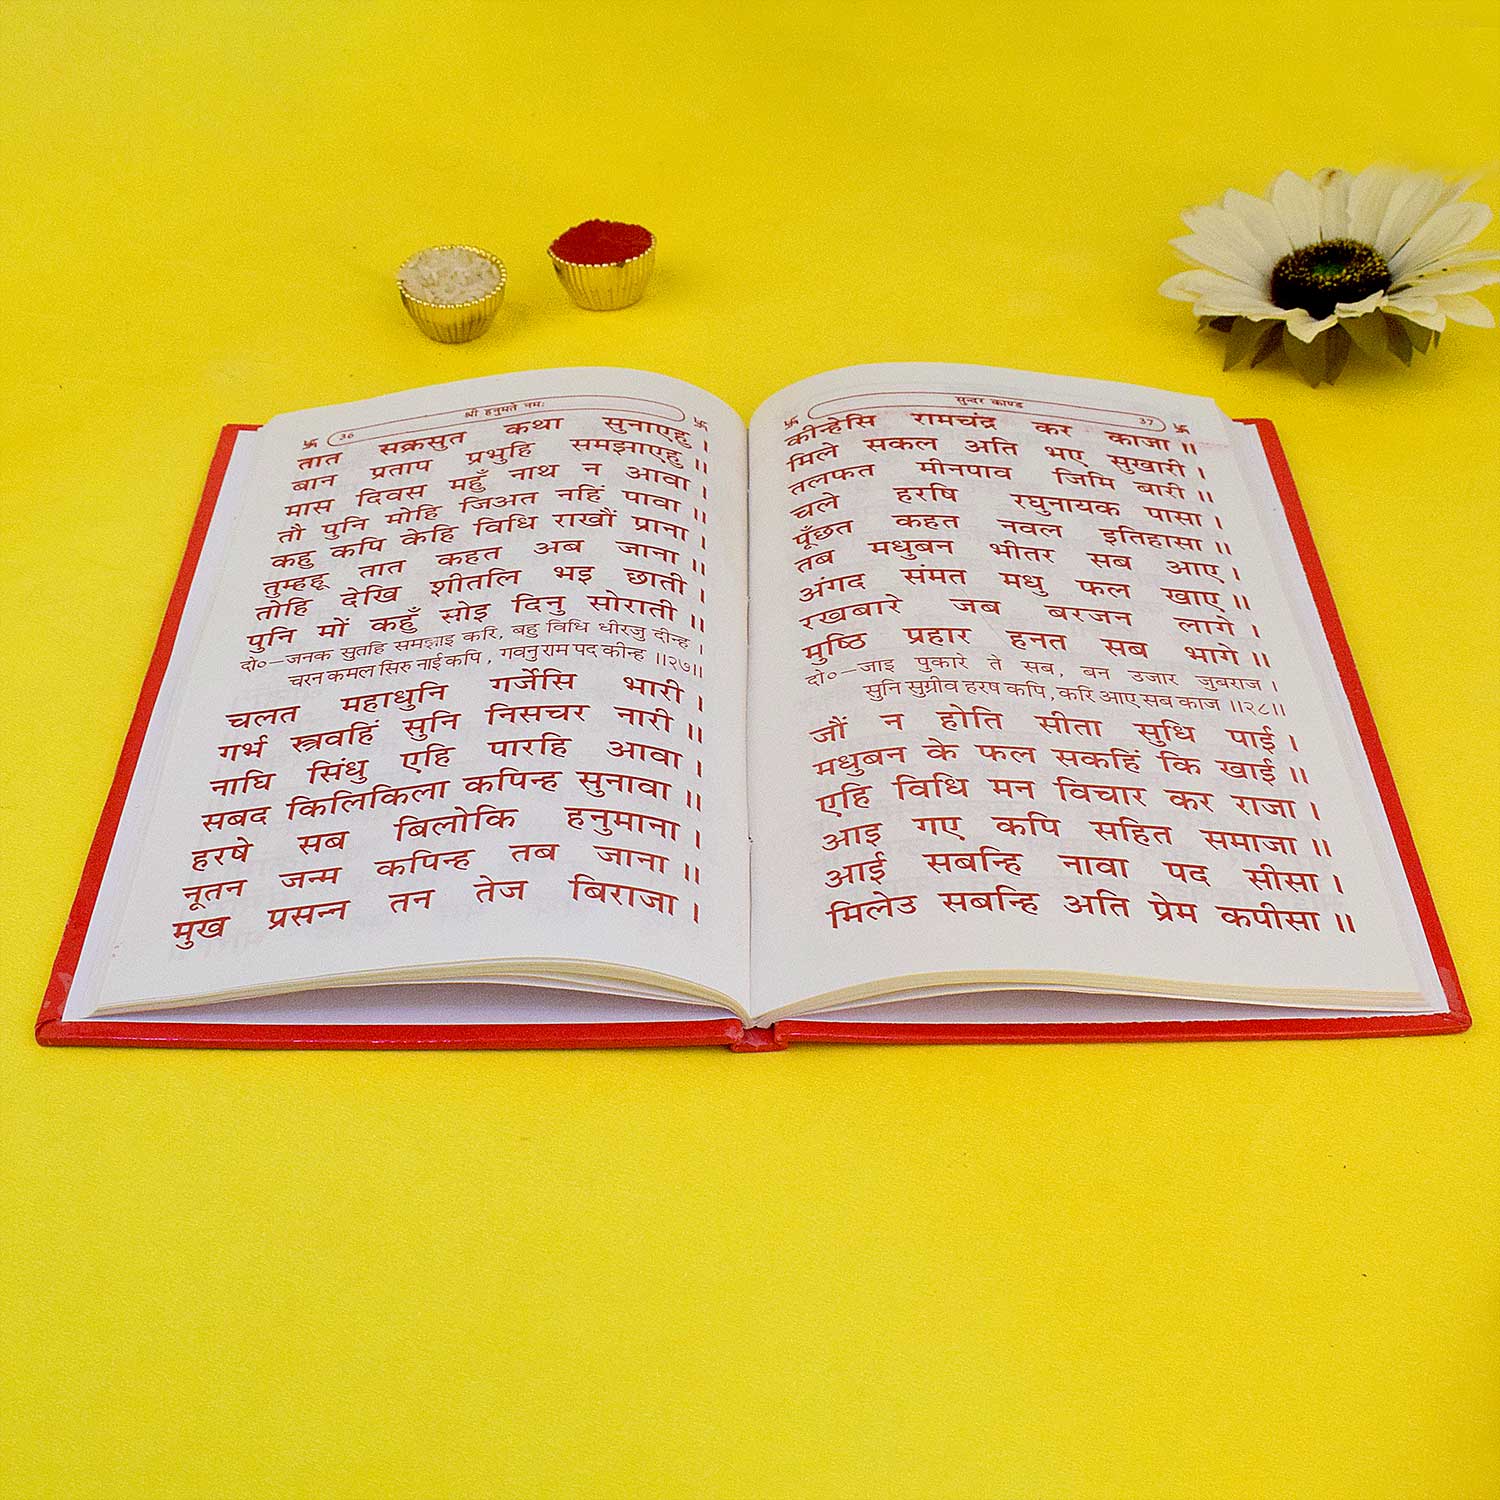 卐 36 श्री हनुमते नमः 卐
तात सक्रसुत कथा सुनाएहु ।
बान प्रताप प्रभुहि समझाएहु ॥
मास दिवस महुँ नाथ न आवा ।
तौ पुनि मोहि जिअत नहिं पावा ॥
कहु कपि केहि विधि राखौं प्राना ।
तुम्हहू तात कहत अब जाना ॥
तोहि देखि शीतलि भइ छाती ।
पुनि मों कहुँ सोइ दिनु सोराती ॥
दो०—जनक सुतहि समझाइ करि, बहु विधि धीरजु दीन्ह ।
चरन कमल सिरु नाई कपि, गवनु राम पद कीन्ह ॥२७॥
चलत महाधुनि गर्जेसि भारी ।
गर्भ स्त्रवहिं सुनि निसचर नारी ॥
नाघि सिंधु एहि पारहि आवा ।
सबद किलिकिला कपिन्ह सुनावा ॥
हरषे सब बिलोकि हनुमाना ।
नूतन जन्म कपिन्ह तब जाना ॥
मुख प्रसन्न तन तेज बिराजा ।
卐 सुन्दर काण्ड 37 卐
कीन्हेसि रामचंद्र कर काजा ॥
मिले सकल अति भए सुखारी ।
तलफत मीनपाव जिमि बारी ॥
चले हरषि रघुनायक पासा ।
पूँछत कहत नवल इतिहासा ॥
तब मधुबन भीतर सब आए ।
अंगद संमत मधु फल खाए ॥
रखबारे जब बरजन लागे ।
मुष्ठि प्रहार हनत सब भागे ॥
दो०—जाइ पुकारे ते सब, बन उजार जुबराज ।
सुनि सुग्रीव हरष कपि, करि आए सब काज ॥२८॥
जौं न होति सीता सुधि पाई ।
मधुबन के फल सकहिं कि खाई ॥
एहि विधि मन विचार कर राजा ।
आइ गए कपि सहित समाजा ॥
आई सबन्हि नावा पद सीसा ।
मिलेउ सबन्हि अति प्रेम कपीसा ॥